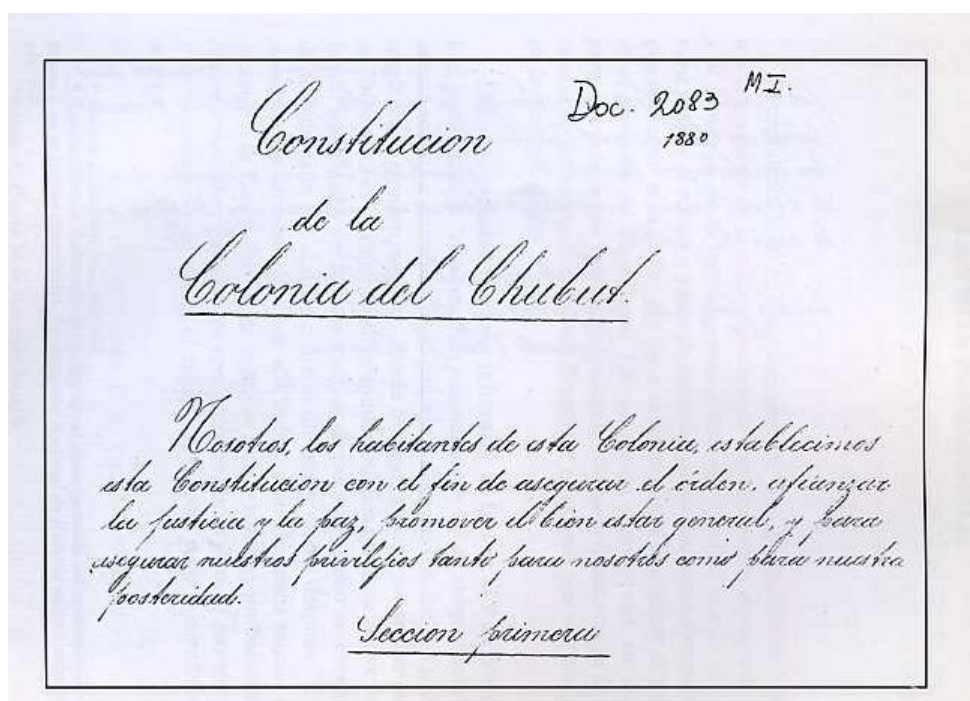 Constitucion
Doc. 2083 M I.
1880
de la
Colonia del Chubut.
Nosotros, los habitantes de esta Colonia, establecimos
esta Constitucion con el fin de asegurar el órden, afianzar
la justicia y la paz, promover el bien estar general, y para
asegurar nuestros privilejios tanto para nosotros como para nuestra
posteridad.
Seccion primera